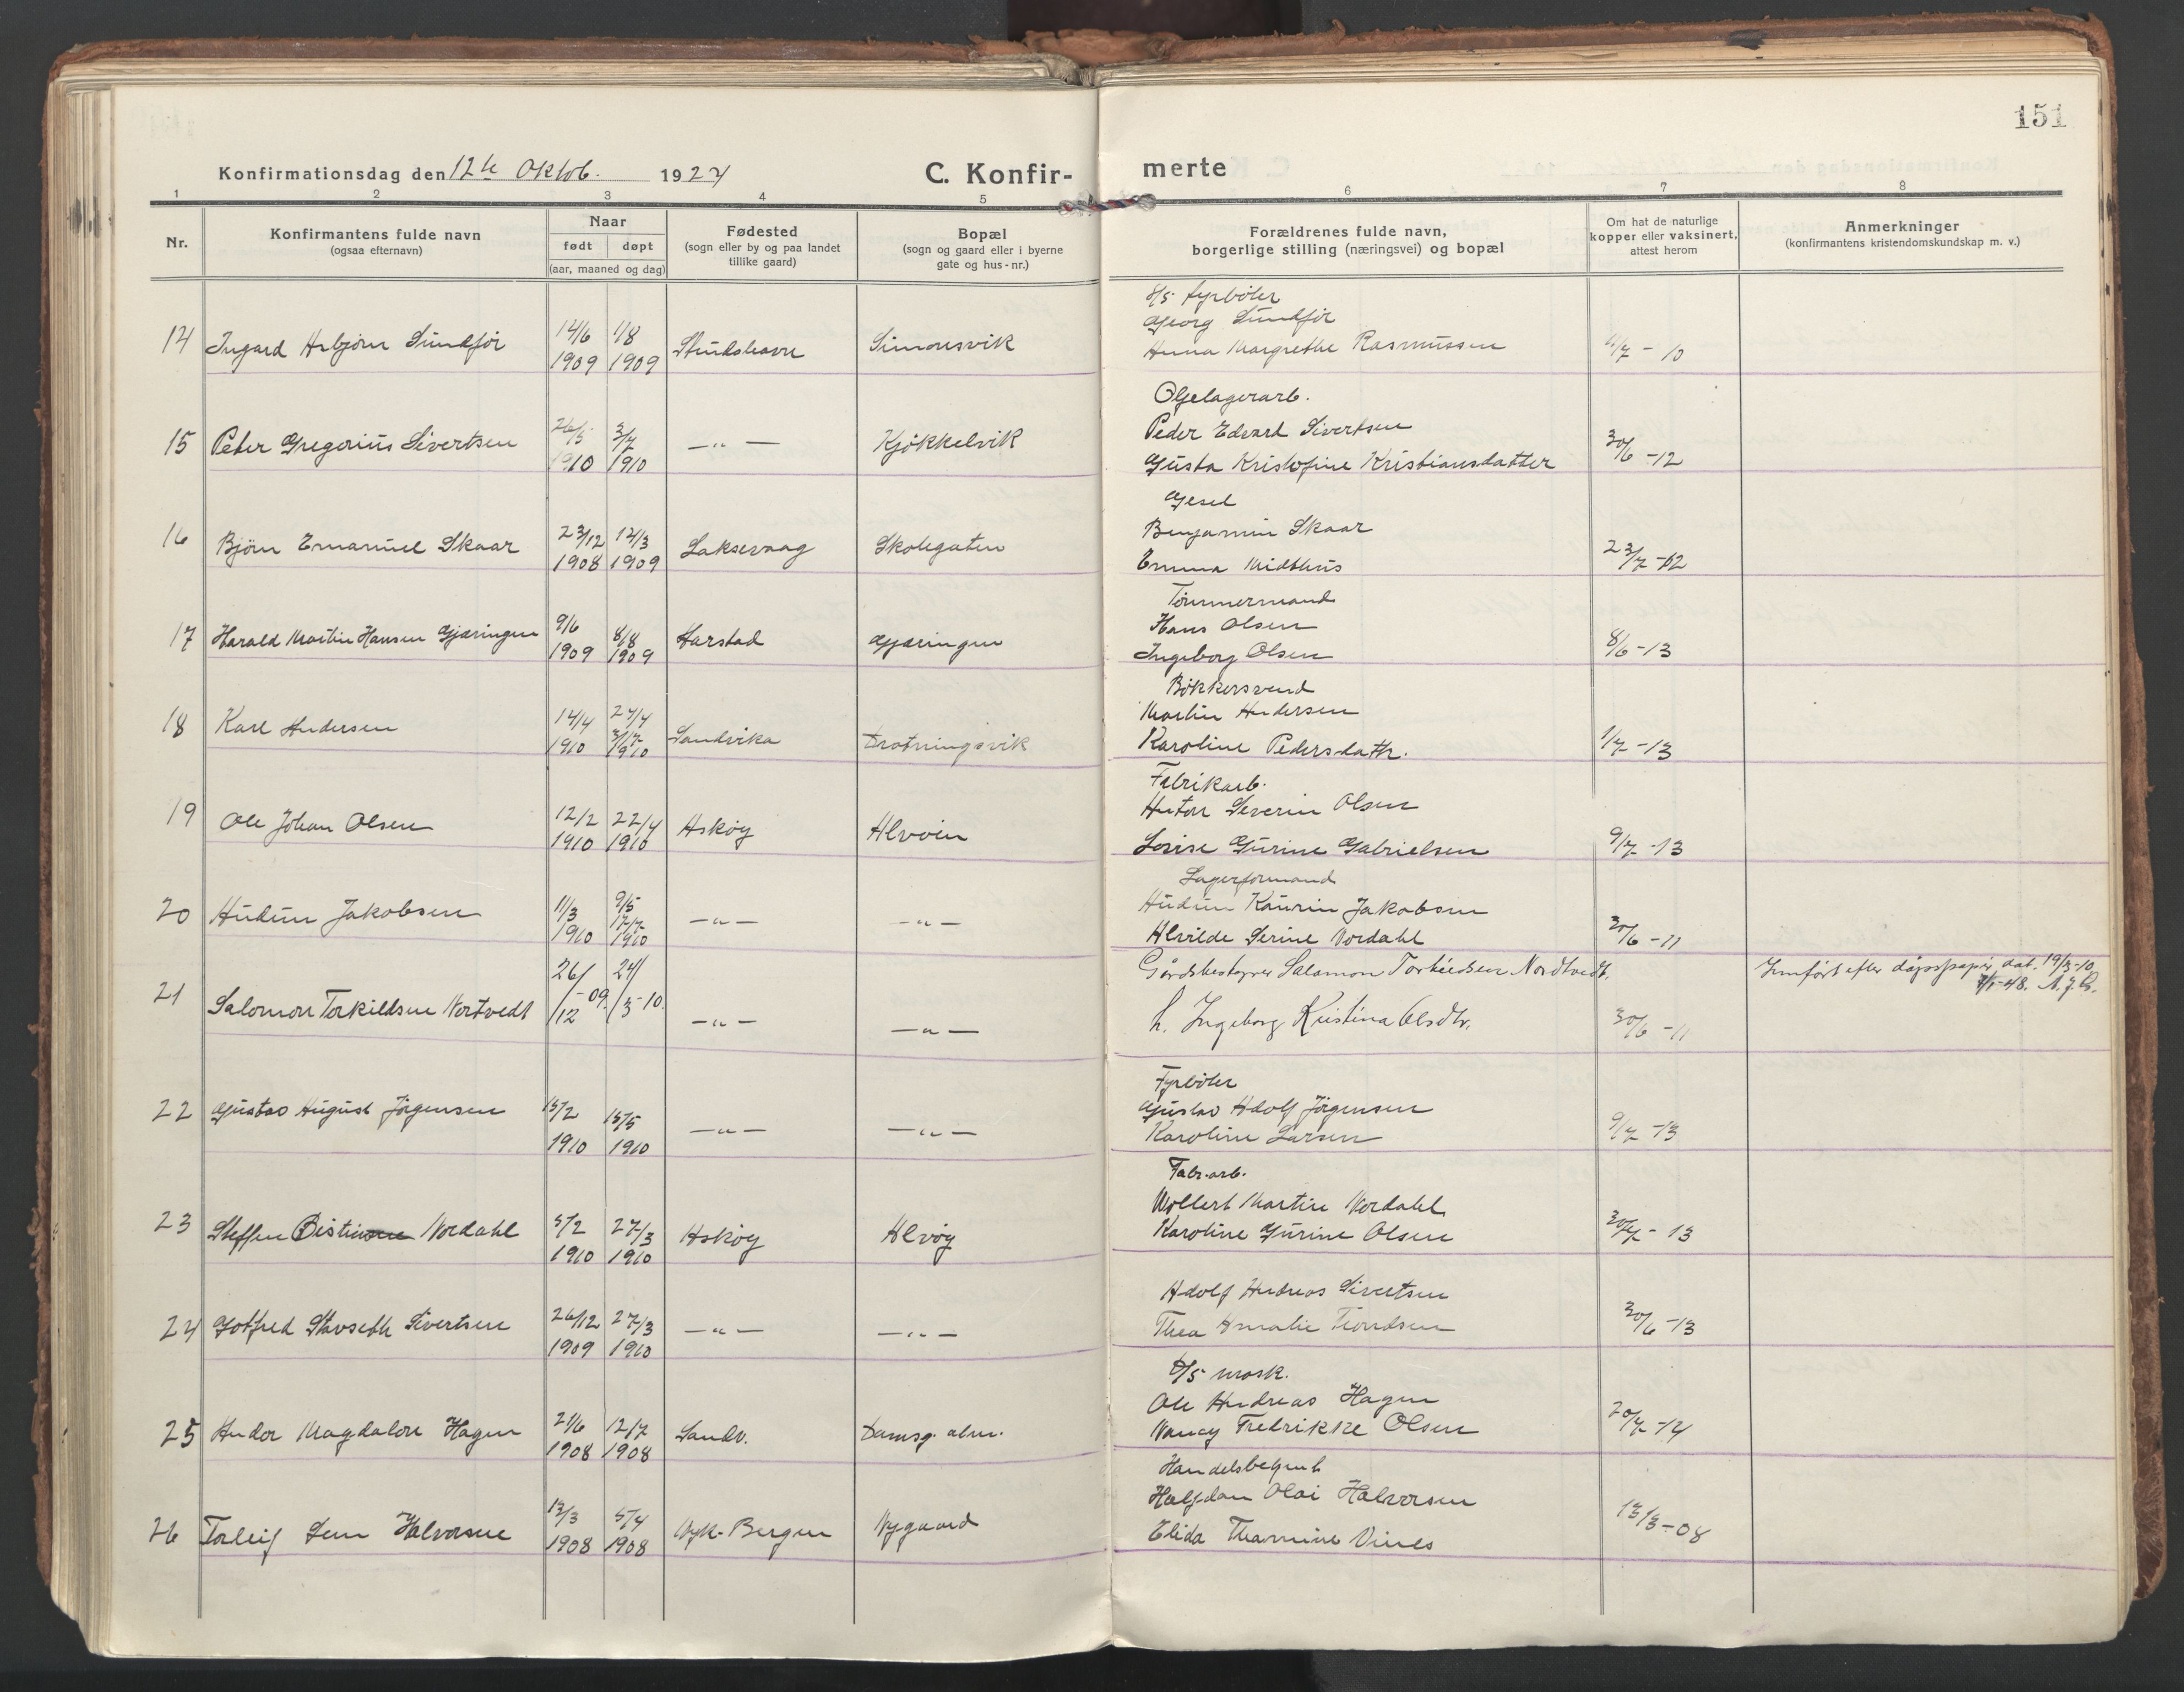 151
Konfirmationsdag den 12te Oktob. 1924
C. Konfir-
merte
1 2 3 4 5 6 7 8
Nr.
Konfirmantens fulde navn
(ogsaa efternavn)
Naar
født døpt
(aar, maaned og dag)
Fødested
(sogn eller by og paa landet
tillike gaard)
Bopæl
(sogn og gaard eller i byerne
gate og hus-nr.)
Forældrenes fulde navn,
borgerlige stilling (næringsvei) og bopæl
Om hat de naturlige
kopper eller vaksinert,
attest herom
Anmerkninger
(konfirmantens kristendomskundskap m. v.)
d/s fyrböter
Georg Sundför
14 Ingard Arbjörn Sundför 14/6 1909 1/8 1909 Simonsvik
Anna Margrethe Rasmussen /7 - 10
Oljelagerarb.
Peder Edvard Sivertsen
15 Peter Gregorius Sivertsen 26/5 1910 3/7 1910 -"- Kjökkelvik
Gusta Kristofine Kristiansdatter 30/6 -12
Gesel
Benjamin Skaar
16 Björn Emanuel Skaar 23/12 1908 14/3 1909 Laksevaag Skolegaten
Emma Midthus 23/7 -12
Tömmermand
Hans Olsen
17 Harald Martin Hansen Gjæringen 9/6 1909 8/8 1909 Harstad Gjæringen
Ingeborg Olsen 8/6 -13
Bökkersvend
Martin Andersen
18 Karl Andersen 14/4 1910 24/4 3/7 1910 Sandvika Drotningsvik
Karoline Pedersdattr. 1/7 -13
Fabrikarb.
Anton Severin Olsen
19 Ole Johan Olsen 12/2 1910 22/4 1910 Askög Alvöen
Lovise Gurine Gabrielsen 9/7 -13
Lagerformand
Audun Kaurin Jakobsen
20 Audun Jakobsen 11/3 1910 9/5 17/7 1910 -"- -"-
Alvilde Serine Nordahl 30/6 -11
Gårdsbestyrer Salamon Torkildsen Nordtvedt. Jemfört efter dåpspapir dat. 19/3-10
7/1-48. A.J.G.
21 Salomon Torkildsen Nortvedt 26/12-09. 24/3-10. -"- -"-
h. Ingeborg Kristina Olsdtr. 30/6 -11
Fyrböter
Gustav Adolf Jörgensen
22 Gustav August Jörgensen 15/2 1910 15/5 1910 -"- -"-
Karoline Larsen 9/7 -13
Fabr.arb.
Wollert Martin Nordahl
23 Steffen Nordahl 5/2 1910 27/3 1910 Askög Alvög
Karoline Gurine Olsen 30/7 - 13
Adolf Andreas Sivertsen
24 Gotfred Stavseth Sivertsen 26/12 1909 27/3 1910 -"- -"-
Thea Amalie 30/6 -13
d/s mask.
Ole Andreas Hagen
25 Andor Magdalon Hagen 21/6 1908 12/7 1908 Sandv. Damsg. alm.
Nancy Fredrikke Olsen 20/7 -14
Handelsbetjent
Halfdan Olai Halvorsen
26 Torleif Halvorsen 13/3 1908 5/4 1908 Nyk-Bergen Nygaard
Elida Thamine Vines 13/3 -08